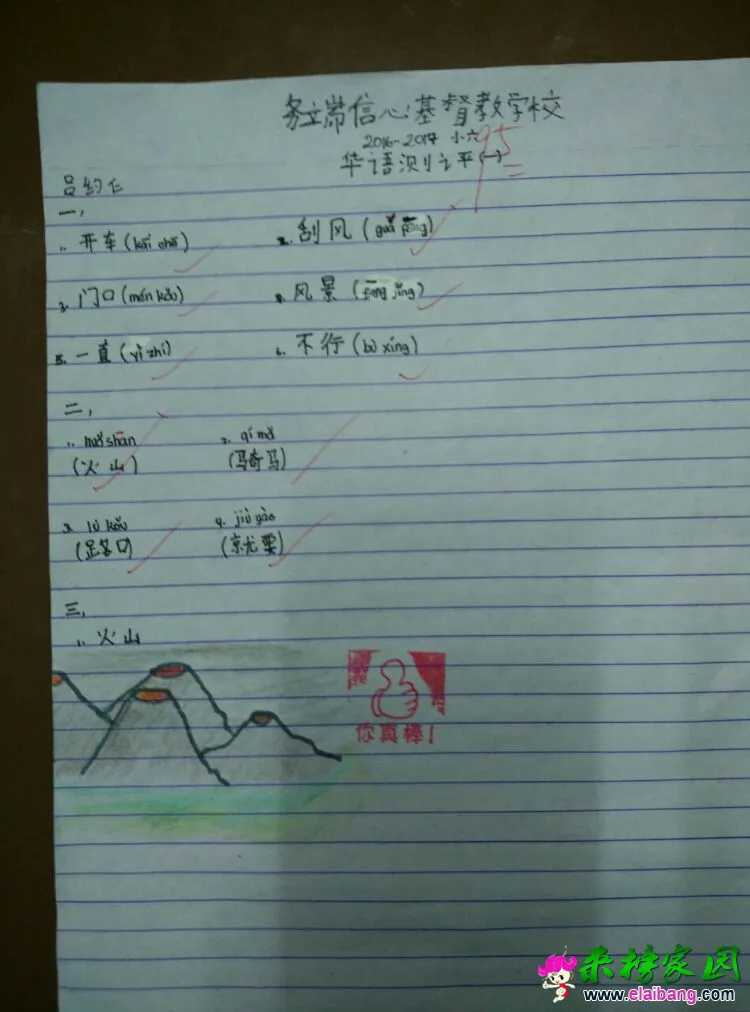 务立端信心基督教学校
2016-2017 小六
华语测评(一)
95
吕约仁
一,
1. 开车(kāi chē) 2. 刮风(guā fēng)
3. 门口(mén kǒu) 4. 风景(fēng jǐng)
5. 一直(yì zhí) 6. 不行(bù xíng)
二,
1. huǒ shān 2. qí mǎ
(火山) (骑马)
3. lù kǒu 4. jiù yào
(路口) (就要)
三,
1. 火山
你真棒!
来榜家园
www.elaibang.com